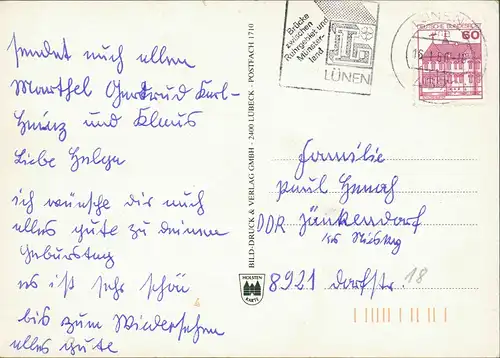 sendet euch allen
Marthel Gertrud Karl-
Heinz und Klaus
Liebe Helga
ich wünsche dir auch
alles gute zu deinem
Geburtstag
es ist sehr schön
bis zum Wiedersehen
alles gute
BILD-DRUCK & VERLAG GMBH · 2400 LÜBECK · POSTFACH 1710
HOLSTEN
KARTE
Brücke
zwischen
Ruhrgebiet und
Münster-
land
LÜNEN
DEUTSCHE BUNDESPOST
60
Familie
Paul
DDR Jänkendorf
Krs Niesky
8921 Dorfstr. 18